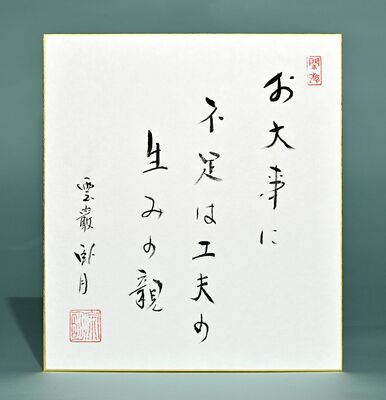 お大事に
不足は工夫の
生みの親
雲巌 臥月